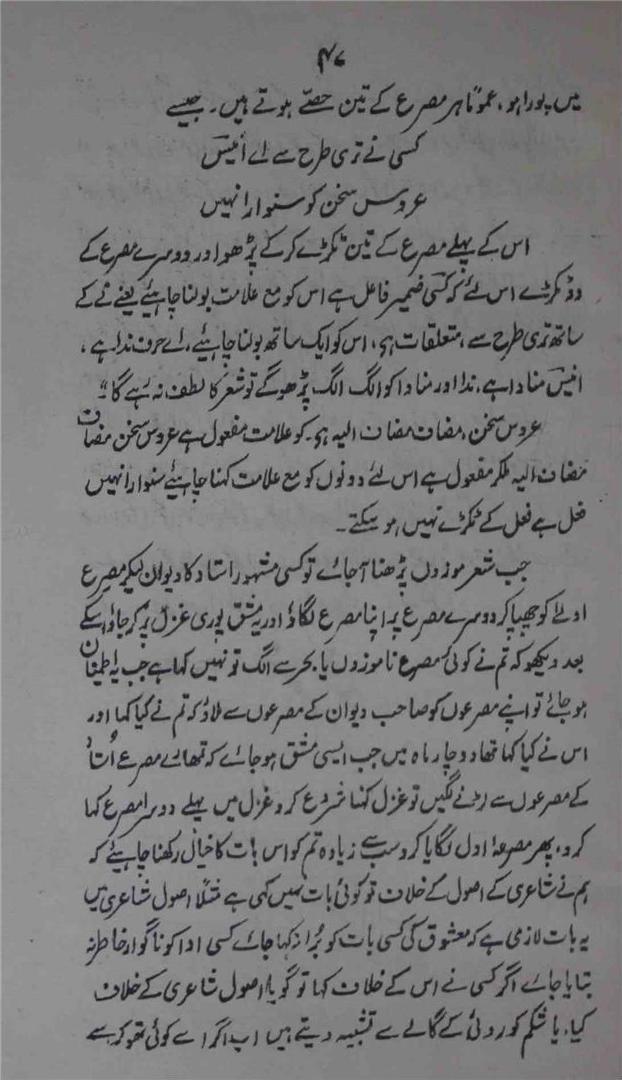 ۴۷
میں پورا ہو، عموماً ہر مصرع کے تین حصّے ہوتے ہیں۔ جیسے
کسی نے تری طرح سے اے انیس
عروس سخن کو سنوارا نہیں
اس کے پہلے مصرع کے تین ٹکڑے کر کے پڑھو اور دوسرے مصرع کے
دو ٹکڑے اس لئے کہ کسی ضمیر فاعل ہے اس کو مع علامت بولنا چاہئیے یعنے نے کے
ساتھ تری طرح سے، متعلقات ہی، اس کو ایک ساتھ بولنا چاہئیے، اے حرف ندا ہے،
انیس منادا ہے، ندا اور منادا کو الگ الگ پڑھوگے تو شعر کا لطف نہ رہے گا
عروس سخن، مضاف مضاف الیہ ہی۔ کو علامت مفعول ہے عروس سخن مضاف
مضاف الیہ ملکر مفعول ہے اس لئے دونوں کو مع علامت کہنا چاہئیے سنوارا نہیں
فعل ہے فعل کے ٹکڑے نہیں ہو سکتے۔
جب شعر موزوں پڑھنا آجائے تو کسی مشہور استاد کا دیوان لیکر مصرع
اولےٰ کو چھپا کر دوسرے مصرع پر اپنا مصرع لگاؤ اور یہ مشق پوری غزل پر کر جاؤ اسکے
بعد دیکھو کہ تم نے کوئی مصرع ناموزوں یا بحر سے الگ تو نہیں کہا ہے جب یہ اطمینان
ہوجائے تو اپنے مصرعوں کو صاحب دیوان کے مصرعوں سے ملاؤ کہ تم نے کیا کہا اور
اس نے کیا کہا تھا دو چار ماہ میں جب ایسی مشق ہوجائے کہ تمھارے مصرعے اُستاد
کے مصرعوں سے لڑنے لگیں تو غزل کہنا شروع کرو غزل میں پہلے دوسرا مصرع کہا
کرو، پھر مصرعۂ اول لگایا کرو سب سے زیادہ تم کو اس بات کا خیال رکھنا چاہئیے کہ
ہم نے شاعری کے اصول کے خلاف تو کوئی بات نہیں کہی ہے مثلاً اصول شاعری میں
یہ بات لازمی ہے کہ معشوق کی کسی بات کو بُرا نہ کہا جائے کسی ادا کو ناگوار خاطر نہ
بتایا جائے اگر کسی نے اس کے خلاف کہا تو گویا اصول شاعری کے خلاف
کیا، یا شکم کو روئی کے گالے سے تشبیہ دیتے ہیں اب اگر اسے کوئی تھوکر سے